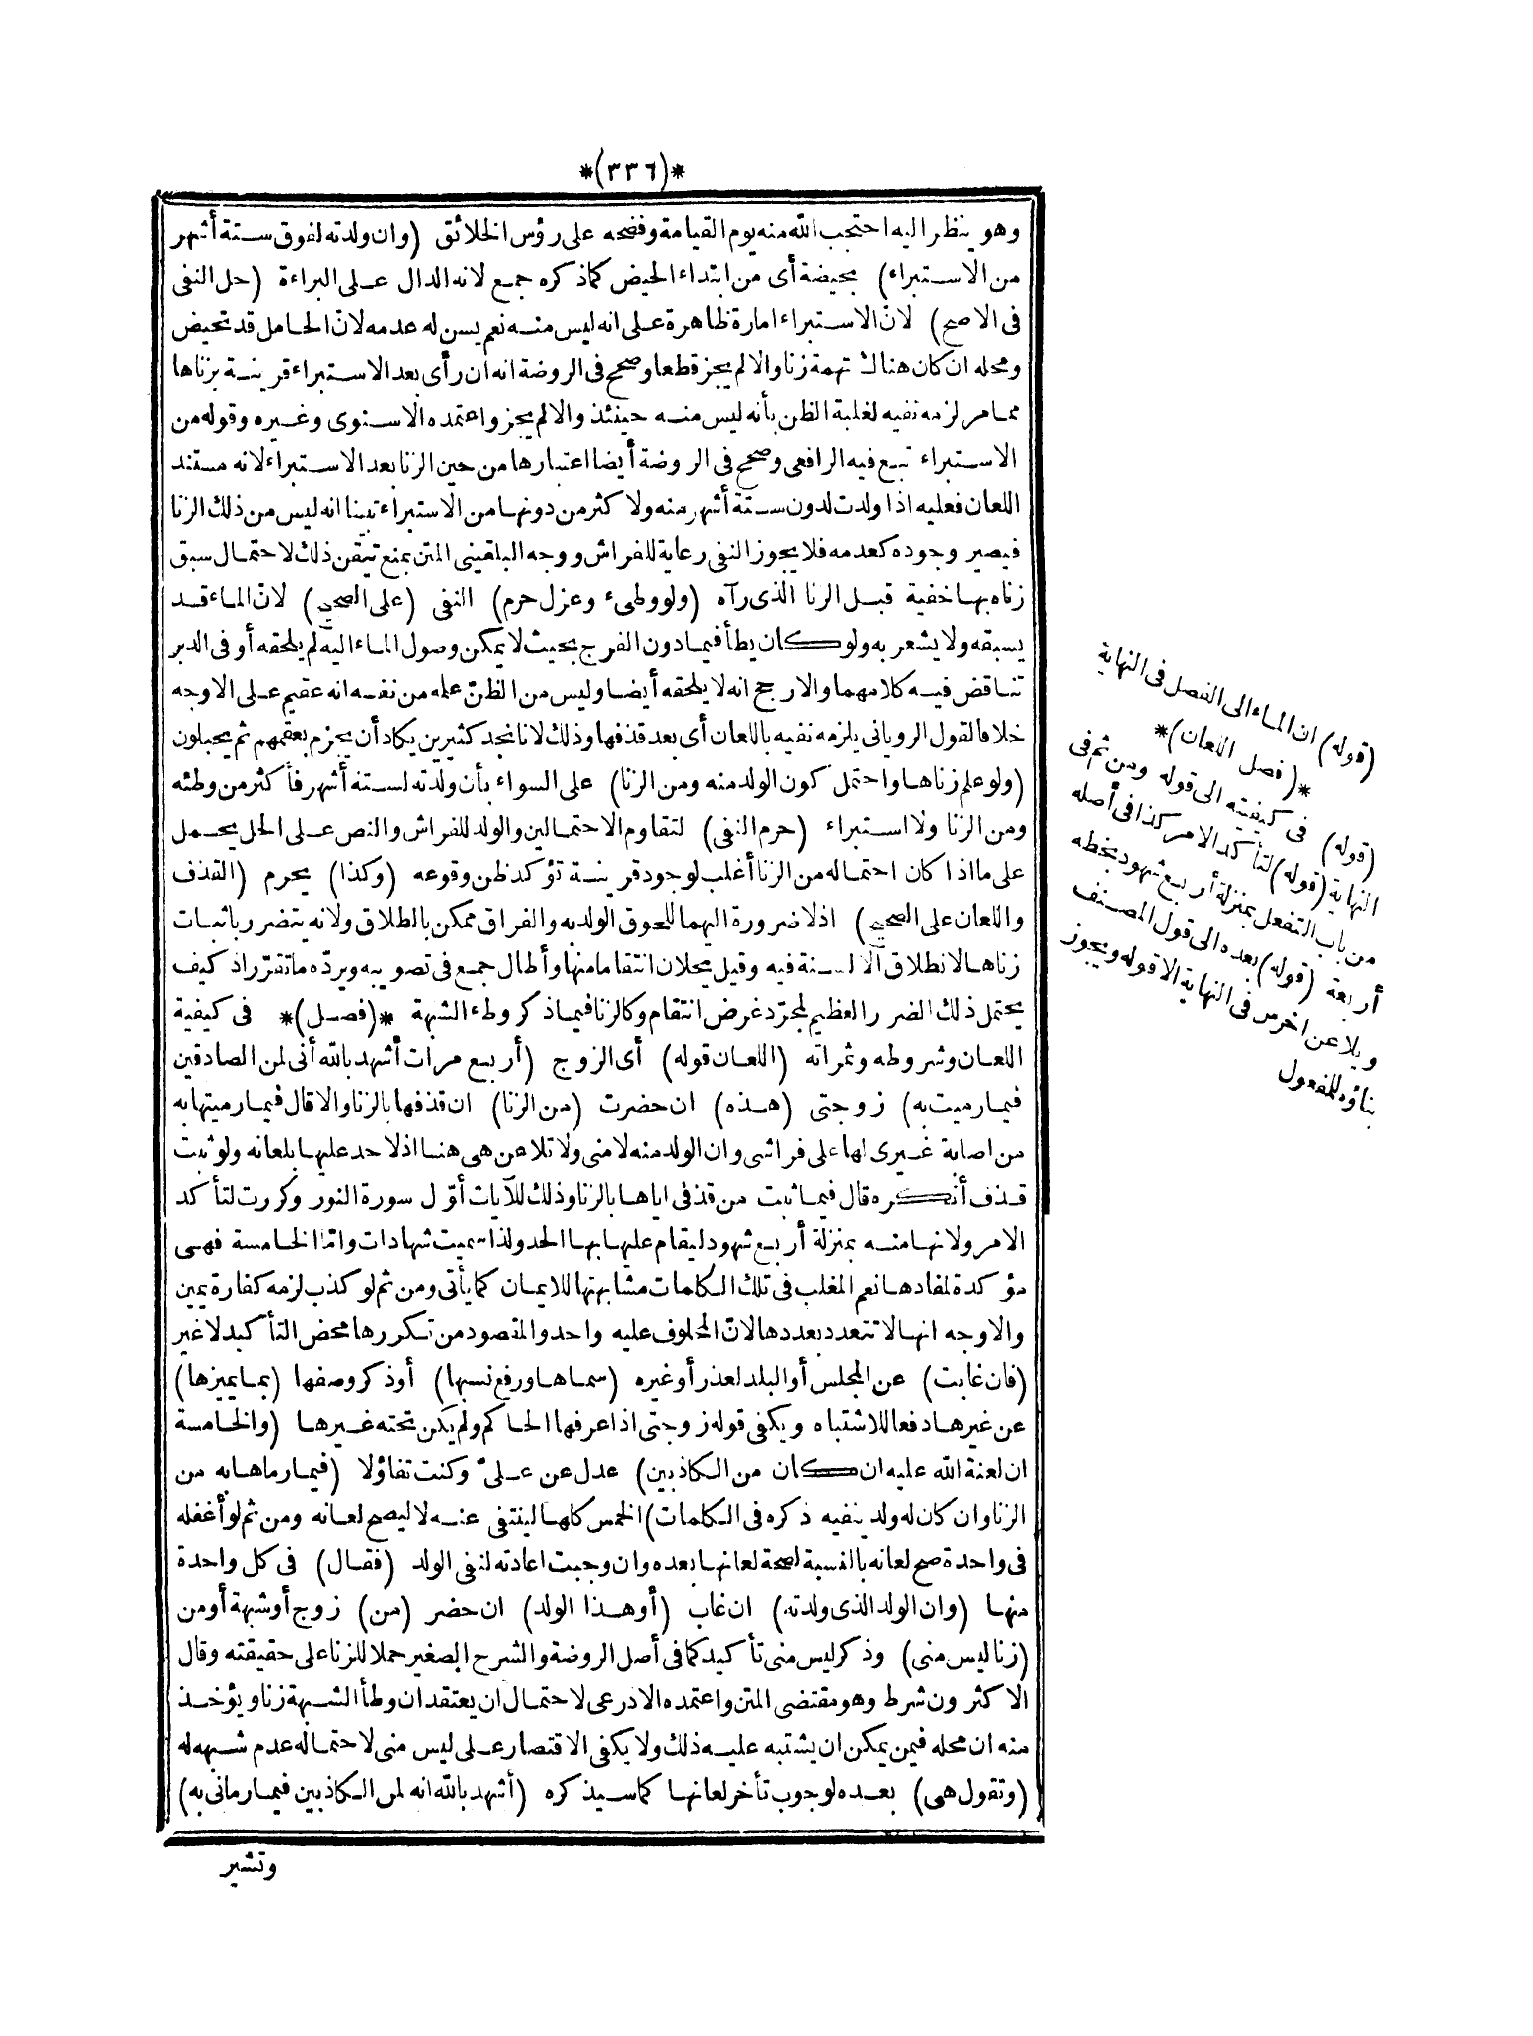 *(٣٣٦)*
وهو ينظر اليه احتجب الله منه يوم القيامة وفضحه على رؤس الخلائق (وان ولدته لفوق ستة أشهر
من الاستبراء) بحيضة أى من ابتداء الحيض كما ذكره جمع لانه الدال على البراءة (حل النفى
فى الاصح) لانّ الاستبراء امارة ظاهرة على انه ليس منه نعم يسن له عدمه لانّ الحامل قد تحيض
ومحله ان كان هناك تهمة زنا والا لم يجز قطعا وصحح فى الروضة انه ان رأى بعد الاستبراء قرينة بزناها
مما مر لزمه نفيه لغلبة الظن بأنه ليس منه حينئذ والا لم يجز واعتمده الاسنوى وغيره وقوله من
الاستبراء تبع فيه الرافعى وصحح فى الروضة أيضا اعتبارها من حين الزنا بعد الاستبراء لانه مستند
اللعان فعليه اذا ولدت لدون ستة أشهر منه ولاكثر من دونها من الاستبراء تبينا انه ليس من ذلك الزنا
فيصير وجوده كعدمه فلا يجوز النفى رعاية للفراش ووجه البلقينى المتن بمنع تيقن ذلك لاحتمال سبق
زناه بها خفية قبل الزنا الذى رآه (ولو وطىء وعزل حرم) النفى (على الصحيح) لانّ الماء قد
يسبقه ولا يشعر به ولو كان يطأ فيما دون الفرج بحيث لا يمكن وصول الماء اليه لم يلحقه أو فى الدبر
تناقض فيه كلامهما والارجح انه لا يلحقه أيضا وليس من الظنّ علمه من نفسه انه عقيم على الاوجه
خلافا لقول الرويانى يلزمه نفيه باللعان أى بعد قذفها وذلك لانا نجد كثيرين يكاد أن يجزم بعقمهم ثم يحبلون
(ولو علم زناها واحتمل كون الولد منه ومن الزنا) على السواء بأن ولدته لستة أشهر فأكثر من وطئه
ومن الزنا ولا استبراء (حرم النفى) لتقاوم الاحتمالين والولد للفراش والنص على الحل يحمل
على ما اذا كان احتماله من الزنا أغلب لوجود قرينة تؤكد ظن وقوعه (وكذا) يحرم (القذف
واللعان على الصحيح) اذ لا ضرورة اليهما للحوق الولد به والفراق ممكن بالطلاق ولانه يتضرر باثبات
زناها لانطلاق الالسنة فيه وقيل يحلان انتقاما منها وأطال جمع فى تصويبه ويردّه ما تقرّر اذ كيف
يحتمل ذلك الضرر العظيم لمجرّد غرض انتقام وكالزنا فيما ذكر وطء الشبهة *(فصل)* فى كيفية
اللعان وشروطه وثمراته (اللعان قوله) أى الزوج (أربع مرات أشهد بالله أنى لمن الصادقين
فيما رميت به) زوجتى (هذه) ان حضرت (من الزنا) ان قذفها بالزنا والا قال فيما رميتها به
من اصابة غيرى لها على فراشى وان الولد منه لا منى ولا تلاعن هى هنا اذ لا حد عليها بلعانه ولو ثبت
قذف أنكره قال فيما ثبت من قذفى اياها بالزنا وذلك للآيات أوّل سورة النور وكررت لتأكد
الامر ولانها منه بمنزلة أربع شهود ليقام عليها بها الحد ولذا سميت شهادات وامّا الخامسة فهى
مؤكدة لمفادها نعم المغلب فى تلك الكلمات مشابهتها للايمان كما يأتى ومن ثم لو كذب لزمه كفارة يمين
والاوجه انها لا تتعدد بعددها لانّ المحلوف عليه واحد والمقصود من تكررها محض التأكيد لا غير
(فان غابت) عن المجلس أو البلد لعذر أو غيره (سماها ورفع نسبها) أو ذكر وصفها (بما يميزها)
عن غيرها دفعا للاشتباه ويكفى قوله زوجتى اذا عرفها الحاكم ولم يكن تحته غيرها (والخامسة
ان لعنة الله عليه ان كان من الكاذبين) عدل عن علىّ وكنت تفاؤلا (فيما رماها به من
الزنا وان كان له ولد ينفيه ذكره فى الكلمات) الخمس كلها لينتفى عنه لا ليصح لعانه ومن ثم لو أغفله
فى واحدة صح لعانه بالنسبة لصحة لعانها بعده وان وجبت اعادته لنفى الولد (فقال) فى كل واحدة
منها (وان الولد الذى ولدته) ان غاب (أو هذا الولد) ان حضر (من) زوج أو شبهة أو من
(زنا ليس منى) وذكر ليس منى تأكيد كما فى أصل الروضة والشرح الصغير حملا للزنا على حقيقته وقال
الاكثرون شرط وهو مقتضى المتن واعتمده الاذرعى لاحتمال ان يعتقد ان وطأ الشبهة زنا ويؤخذ
منه ان محله فيمن يمكن ان يشتبه عليه ذلك ولا يكفى الاقتصار على ليس منى لاحتماله عدم شبهه له
(وتقول هى) بعده لوجوب تأخر لعانها كما سيذكره (أشهد بالله انه لمن الكاذبين فيما رمانى به)
وتشير
(قوله) ان الماء الى الفصل فى النهاية
*(فصل اللعان)*
(قوله) فى كيفيته الى قوله ومن ثم فى
النهاية (قوله) لتأكد الامر كذا فى أصله
من باب التفعل بمنزلة أربع شهود بخطه
أربعة (قوله) بعده الى قول المصنف
ويلاعن اخرس فى النهاية الا قوله ويجوز
بناؤه للمفعول